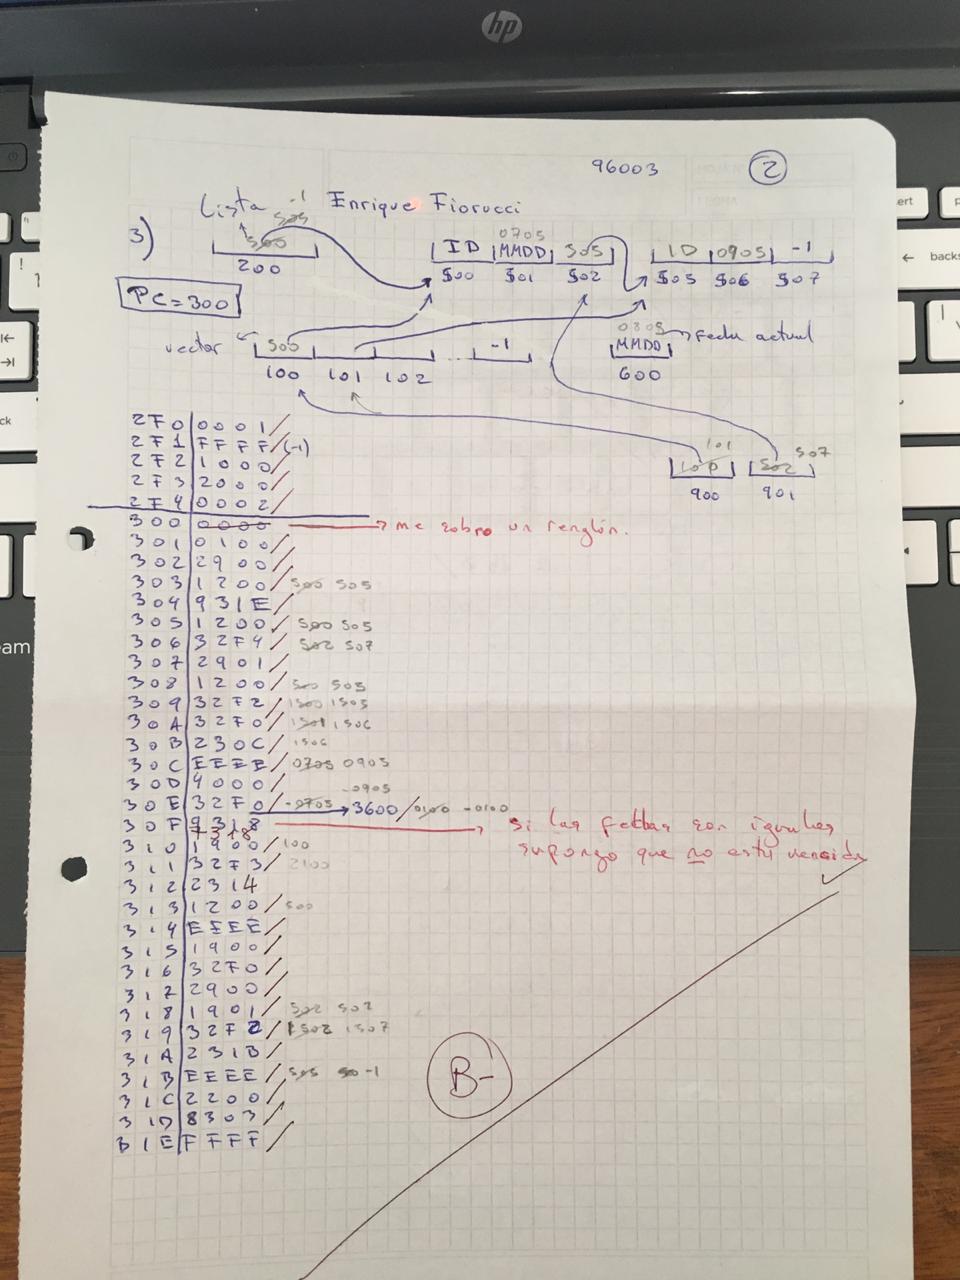 hp
96003 2
Lista -1 Enrique Fiorucci
505
3) 500 ID 0705 MMDD 505 ID 0905 -1
200 500 501 502 505 506 507
PC=300
vector 500 -1 0805 MMDD → Fecha actual
100 101 102 600
101 507
100 502
900 901
2F0 0001
2F1 FFFF (-1)
2F2 1000
2F3 2000
2F4 0002
300 0000 → me sobro un renglón.
301 0100
302 2900
303 1200 500 505
304 931E
305 1200 500 505
306 32F4 502 507
307 2901
308 1200 500 505
309 32F2 1500 1505
30A 32F0 1501 1506
30B 230C 1506
30C EEEE 0705 0905
30D 4000 -0905
30E 32F0 -0705 → 3600 / 0100 -0100
30F 9318 → si las fechas son iguales
7318
310 1900 100 supongo que no está vencida
311 32F3 2100
312 2314
313 1200 500
314 EEEE
315 1900
316 32F0
317 2900
318 1901 502 507
319 32F2 1502 1507
31A 231B
31B EEEE 505 50 -1
31C 2200
31D 8303
31E FFFF
B-
ert
backs
eam